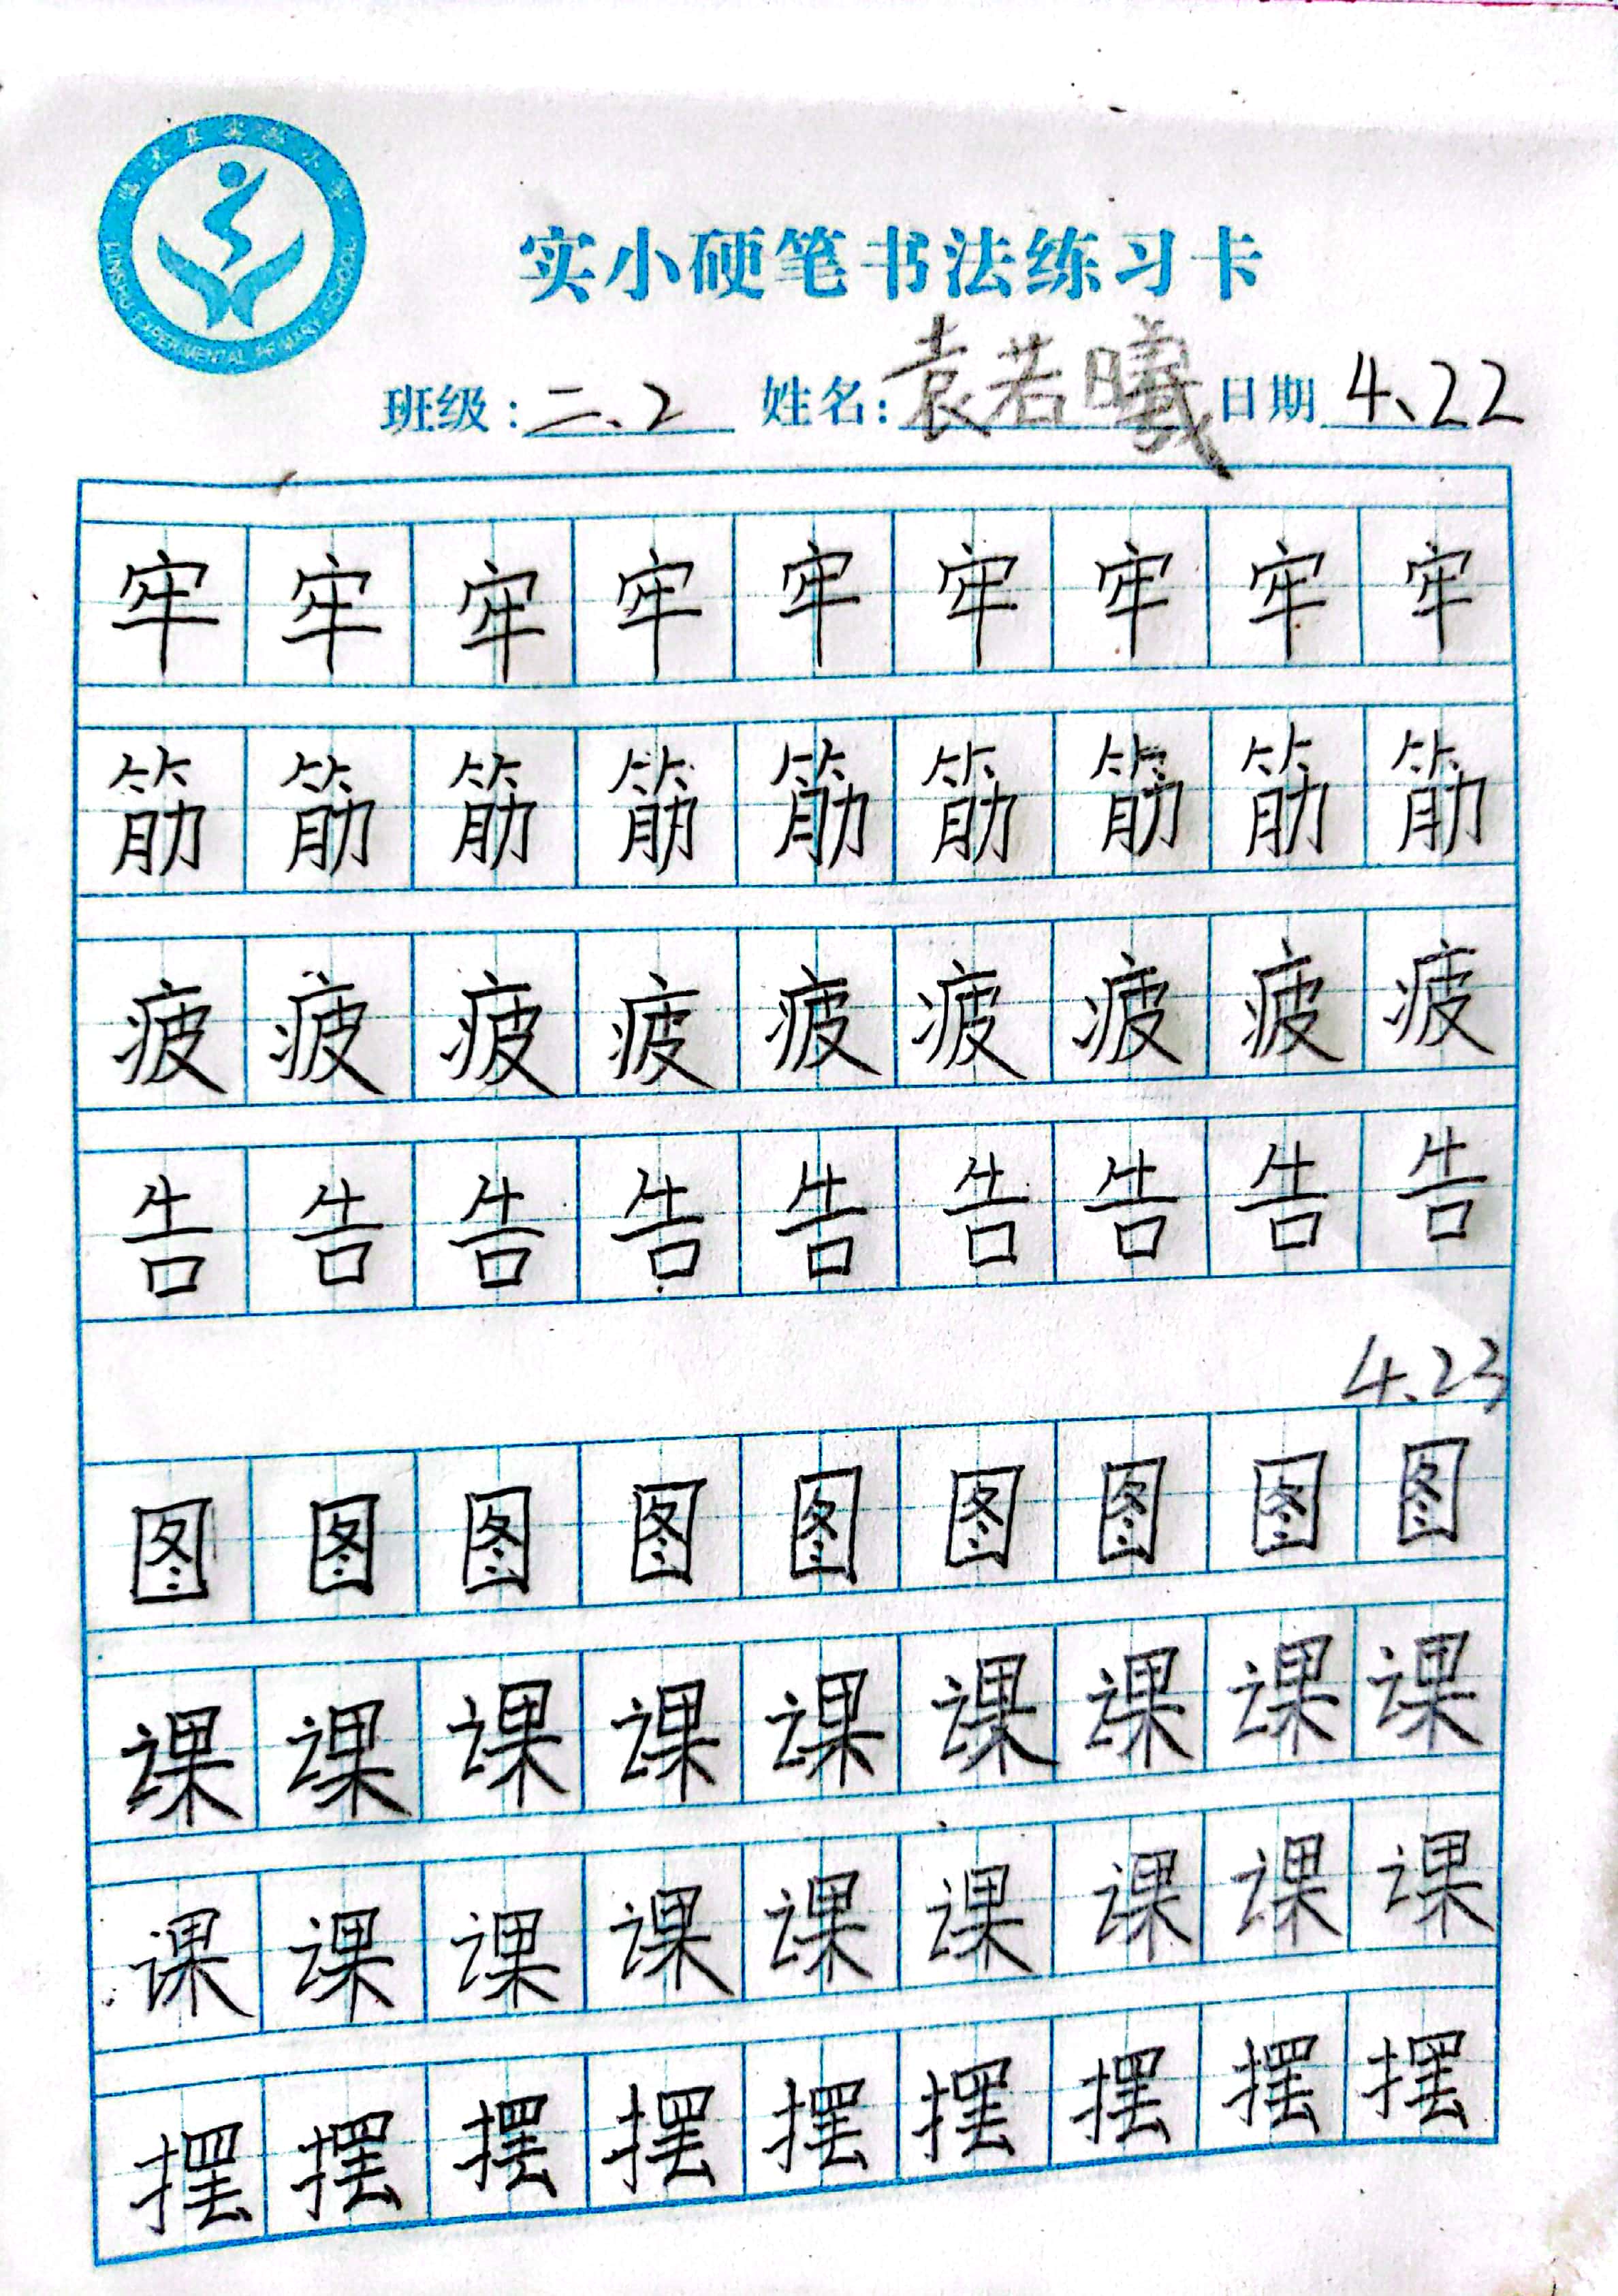 临沭县实验小学
LINSHU EXPERIMENTAL PRIMARY SCHOOL
实小硬笔书法练习卡
班级:二、2 姓名:袁若曦 日期 4、22
牢牢牢牢牢牢牢牢牢
筋筋筋筋筋筋筋筋筋
疲疲疲疲疲疲疲疲疲
告告告告告告告告告
4、23
图图图图图图图图图
课课课课课课课课课
课课课课课课课课课
摆摆摆摆摆摆摆摆摆